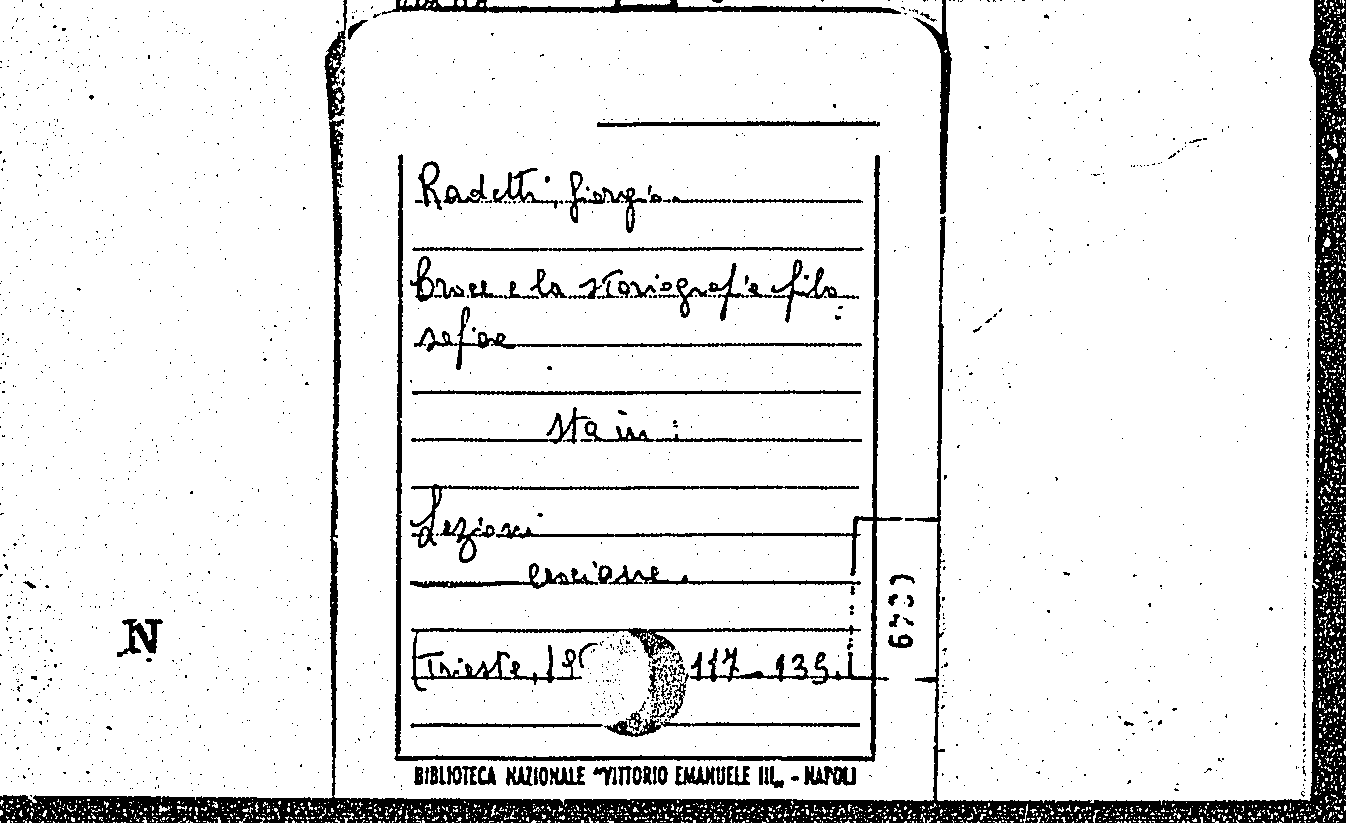 Radetti, Giorgio.
Croce e la storiografia filo
sofica
sta in:
Lezioni
crociane.
[Trieste, 19 117-139.
BIBLIOTECA NAZIONALE "VITTORIO EMANUELE III„ - NAPOLI
N